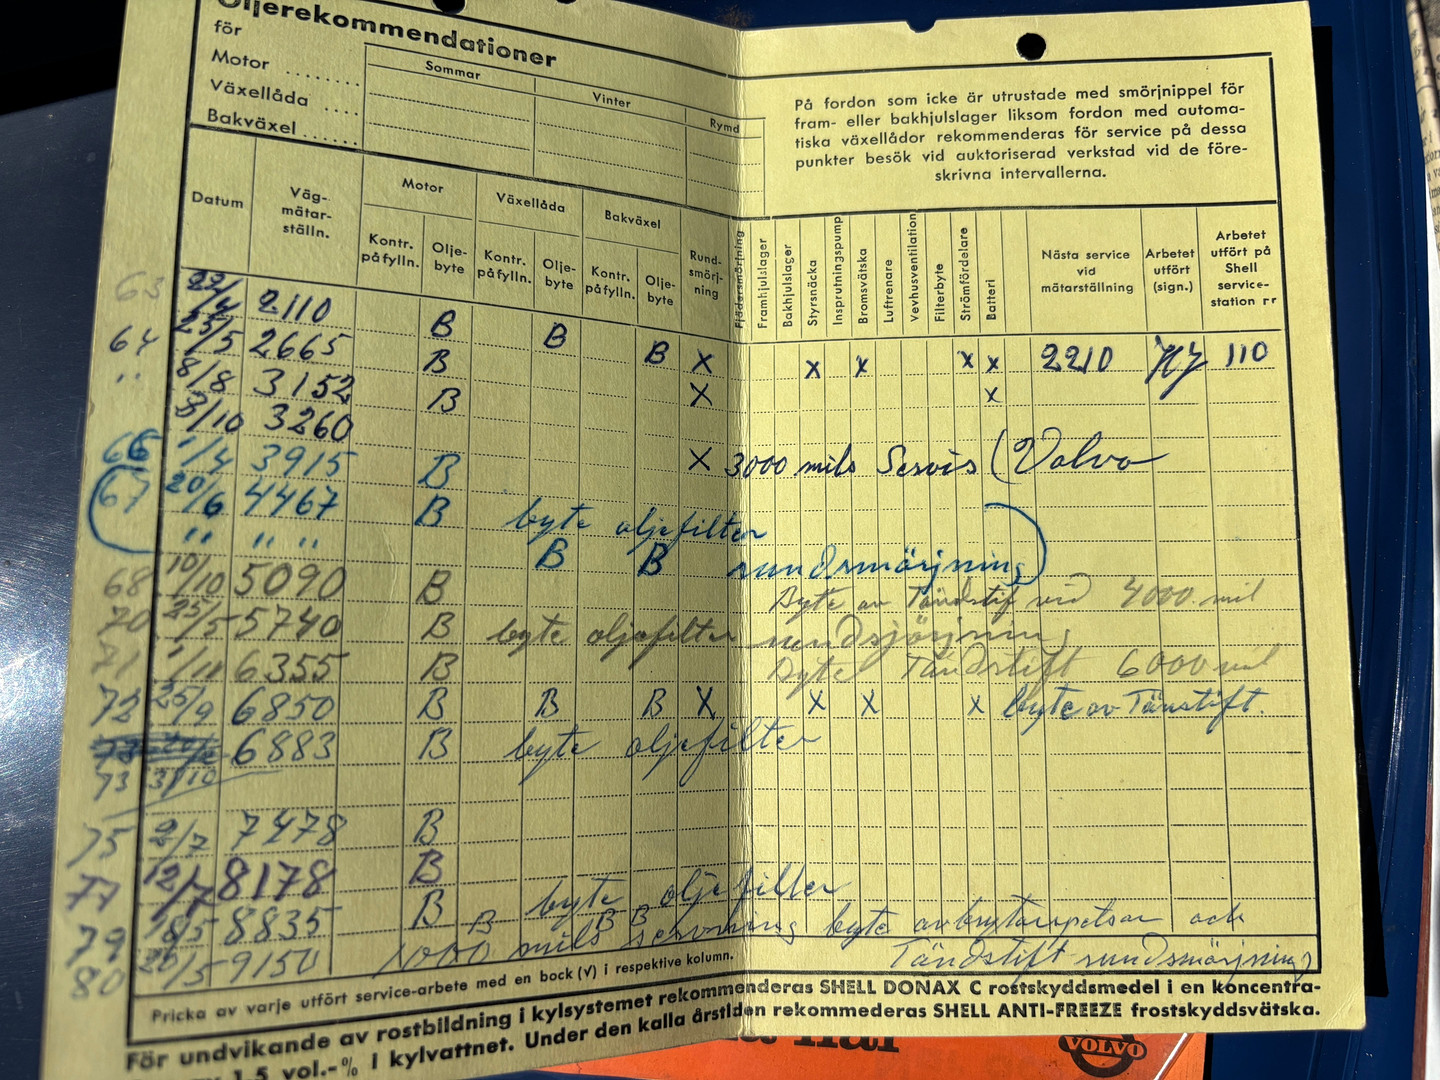 Oljerekommendationer
för
Motor ........
Växellåda ....
Bakväxel .....
Sommar Vinter Rymd
På fordon som icke är utrustade med smörjnippel för
fram- eller bakhjulslager liksom fordon med automa-
tiska växellådor rekommenderas för service på dessa
punkter besök vid auktoriserad verkstad vid de före-
skrivna intervallerna.
Datum
Väg-
mätar-
ställn.
Motor Växellåda Bakväxel
Kontr. påfylln. Olje- byte Kontr. påfylln. Olje- byte Kontr. påfylln. Olje- byte
Rund-
smörj-
ning
Fjädersmörjning
Framhjulslager
Bakhjulslager
Styrsnäcka
Insprutningspump
Bromsvätska
Luftrenare
Vevhusventilation
Filterbyte
Strömfördelare
Batteri
Nästa service
vid
mätarställning
Arbetet
utfört
(sign.)
Arbetet
utfört på
Shell
service-
station nr
63 22/4 2110 B B B X X X X X 2210 110
64 25/5 2665 B X X
" 8/8 3152 B
8/10 3260 X 3000 mils Servis (Volvo
66 1/4 3915 B
67 20/6 4467 B byte oljefilter
" " " B B rundsmörjning)
68 10/10 5090 B Byte av Tändstif vid 4000 mil
70 25/5 5740 B byte oljefilter rundsjörjning
71 1/10 6355 B Byte Tändstift 6000 mil
72 25/9 6850 B B B X X X X byte av Tänstift.
6883 B byte oljefilter
73 31/10
75 2/7 7478 B
77 12/7 8178 B
79 18/5 8835 B byte oljefilter
80 20/5 9150 B B B mils servning byte avbrytarspetsar och
Tändstift rundsmörjning
Pricka av varje utfört service-arbete med en bock (V) i respektive kolumn.
För undvikande av rostbildning i kylsystemet rekommenderas SHELL DONAX C rostskyddsmedel i en koncentra-
1,5 vol.-% i kylvattnet. Under den kalla årstiden rekommederas SHELL ANTI-FREEZE frostskyddsvätska.
VOLVO